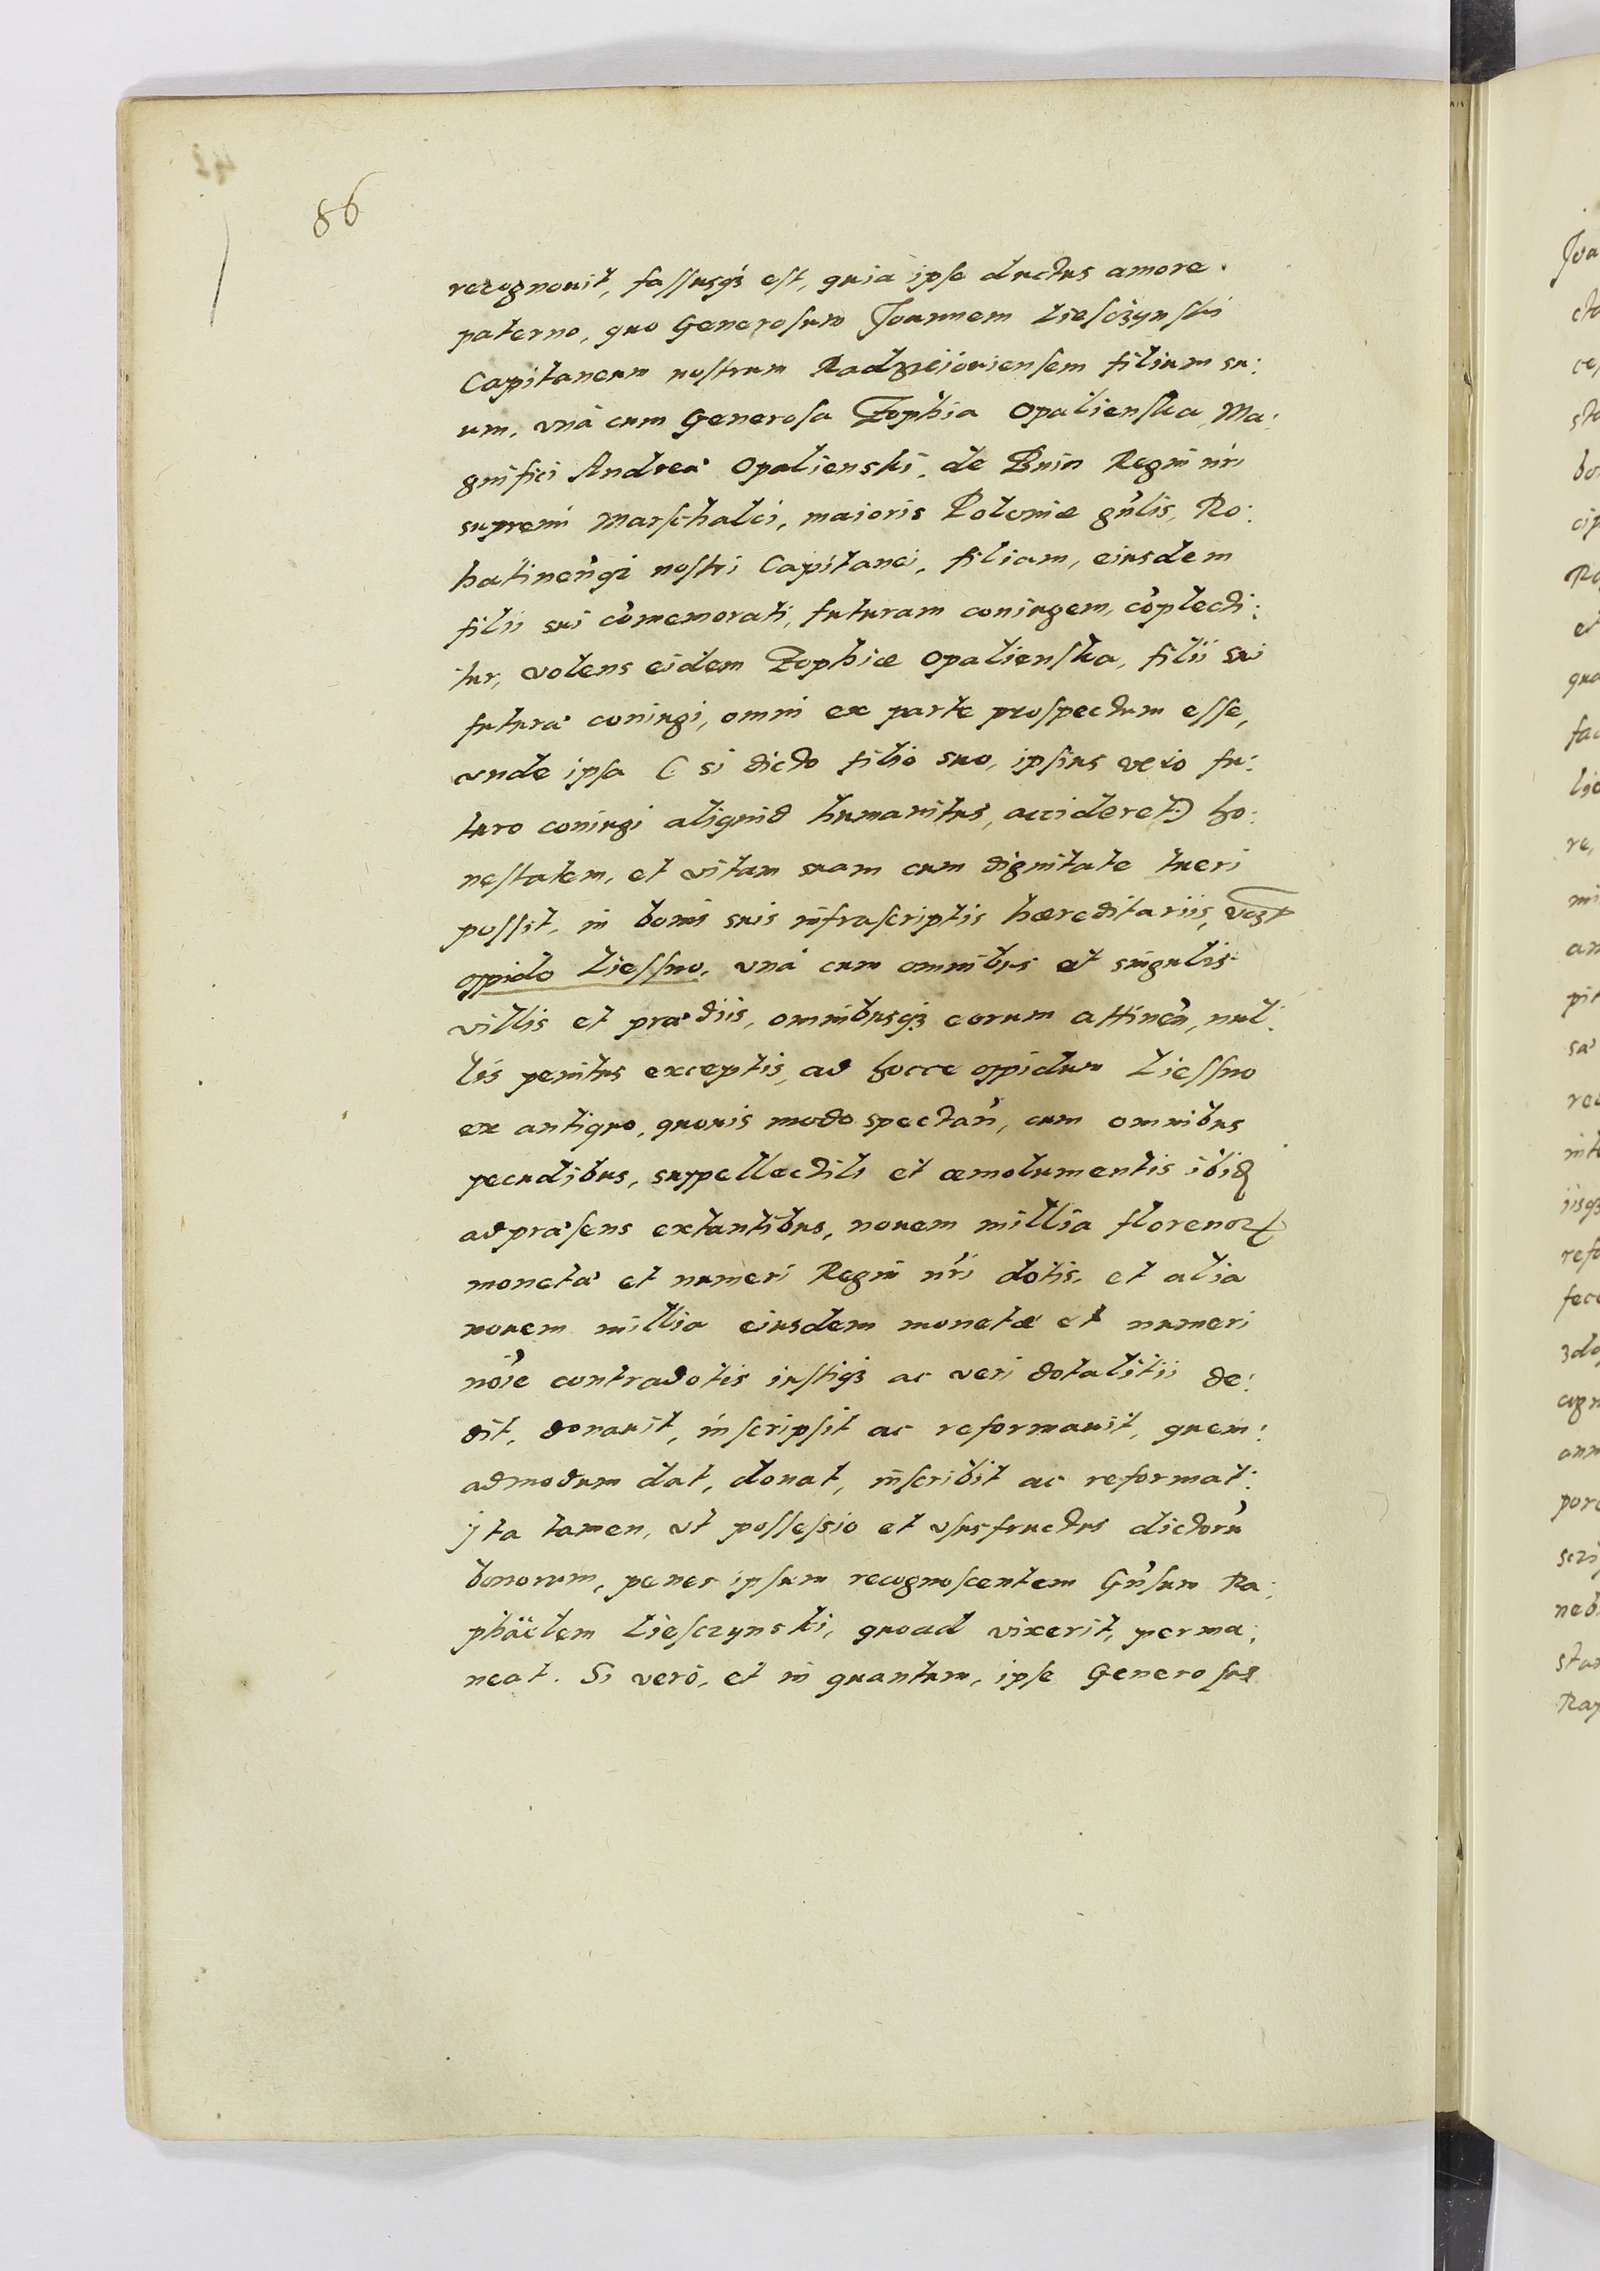 86
recognouit, fassusq́ꝫ est, quia ipse ductus amore
paterno, quo Generosum Joannem Liesczynski
Capitaneum nostrum Radzieiouiensem filium su:
um, vnà cum Generosa Zophia Opalienska, Ma:
gnifici Andreæ Opalienski, de Bnin Regni nri
supremi Marschalci, maioris Poloniæ gńlis, Ro:
hatinenqꝫ nostri Capitanei, filiam, eiusdem
filii sui cómemorati, futuram coniugem, cóplecti:
tur, volens eidem Zophiæ Opalienska, filii sui
futuræ coniugi, omni ex parte prospectum esse,
vnde ipsa ( si dicto filio suo, ipsius vero fu:
turo coniugi aliquid humanitus, accideret) ho:
nestatem, et vitam suam cum dignitate tueri
possit, in bonis suis infrascriptis hæreditariis,
oppido Liessno, vná cum omnibus et singulis
villis et prædiis, omnibusqꝫ eorum attineń, nul:
lis penitus exceptis, ad hocce oppidum Liessno
ex antiquo, quouis modo spectań, cum omnibus
pecudibus, suppellectili et æmolumentis ibid
ad præsens extantibus, nouem millia florenoꝝ
monetæ et numeri Regni nŕi dotis, et alia
nouem millia eiusdem monetæ et numeri
nóie contradotis iustiqꝫ ac veri dotalitii de:
dit, donauit, inscripsit ac reformauit, quem:
admodum dat, donat, inscribit ac reformat:
Jta tamen, vt possessio et vsusfructus dictorú
bonorum, penes ipsum recognoscentem Gńsum Ra:
phäelem Liesczynski, quoad vixerit, perma:
neat. Si verò, et in quantum, ipse Generosus